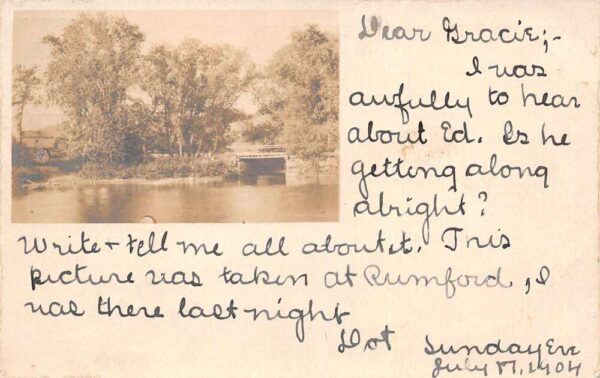 Dear Gracie;-
I was
awfully to hear
about Ed. Is he
getting along
alright?
Write + tell me all about it. This
picture was taken at Rumford, I
was there last night
Dot
Sunday Eve
July 17, 1904